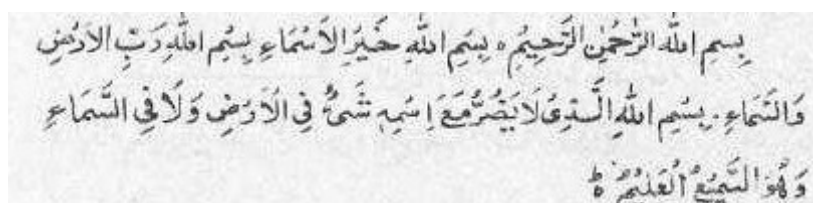 بِسْمِ اللهِ الرَّحْمٰنِ الرَّحِيْمِ ه بِسْمِ اللهِ خَيْرِ الْاَسْمَاءِ بِسْمِ اللهِ رَبِّ الْاَرْضِ
وَالسَّمَاءِ۔ بِسْمِ اللهِ الَّذِىْ لَا يَضُرُّ مَعَ اِسْمِهٖ شَىْءٌ فِى الْاَرْضِ وَلَا فِى السَّمَاءِ
وَهُوَ السَّمِيْعُ الْعَلِيْمُ ط